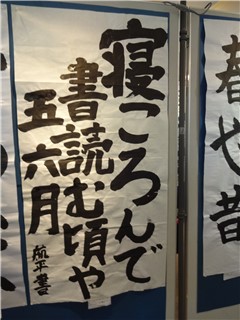 寝ころんで
書読む頃や
五六月
航平書
春や昔